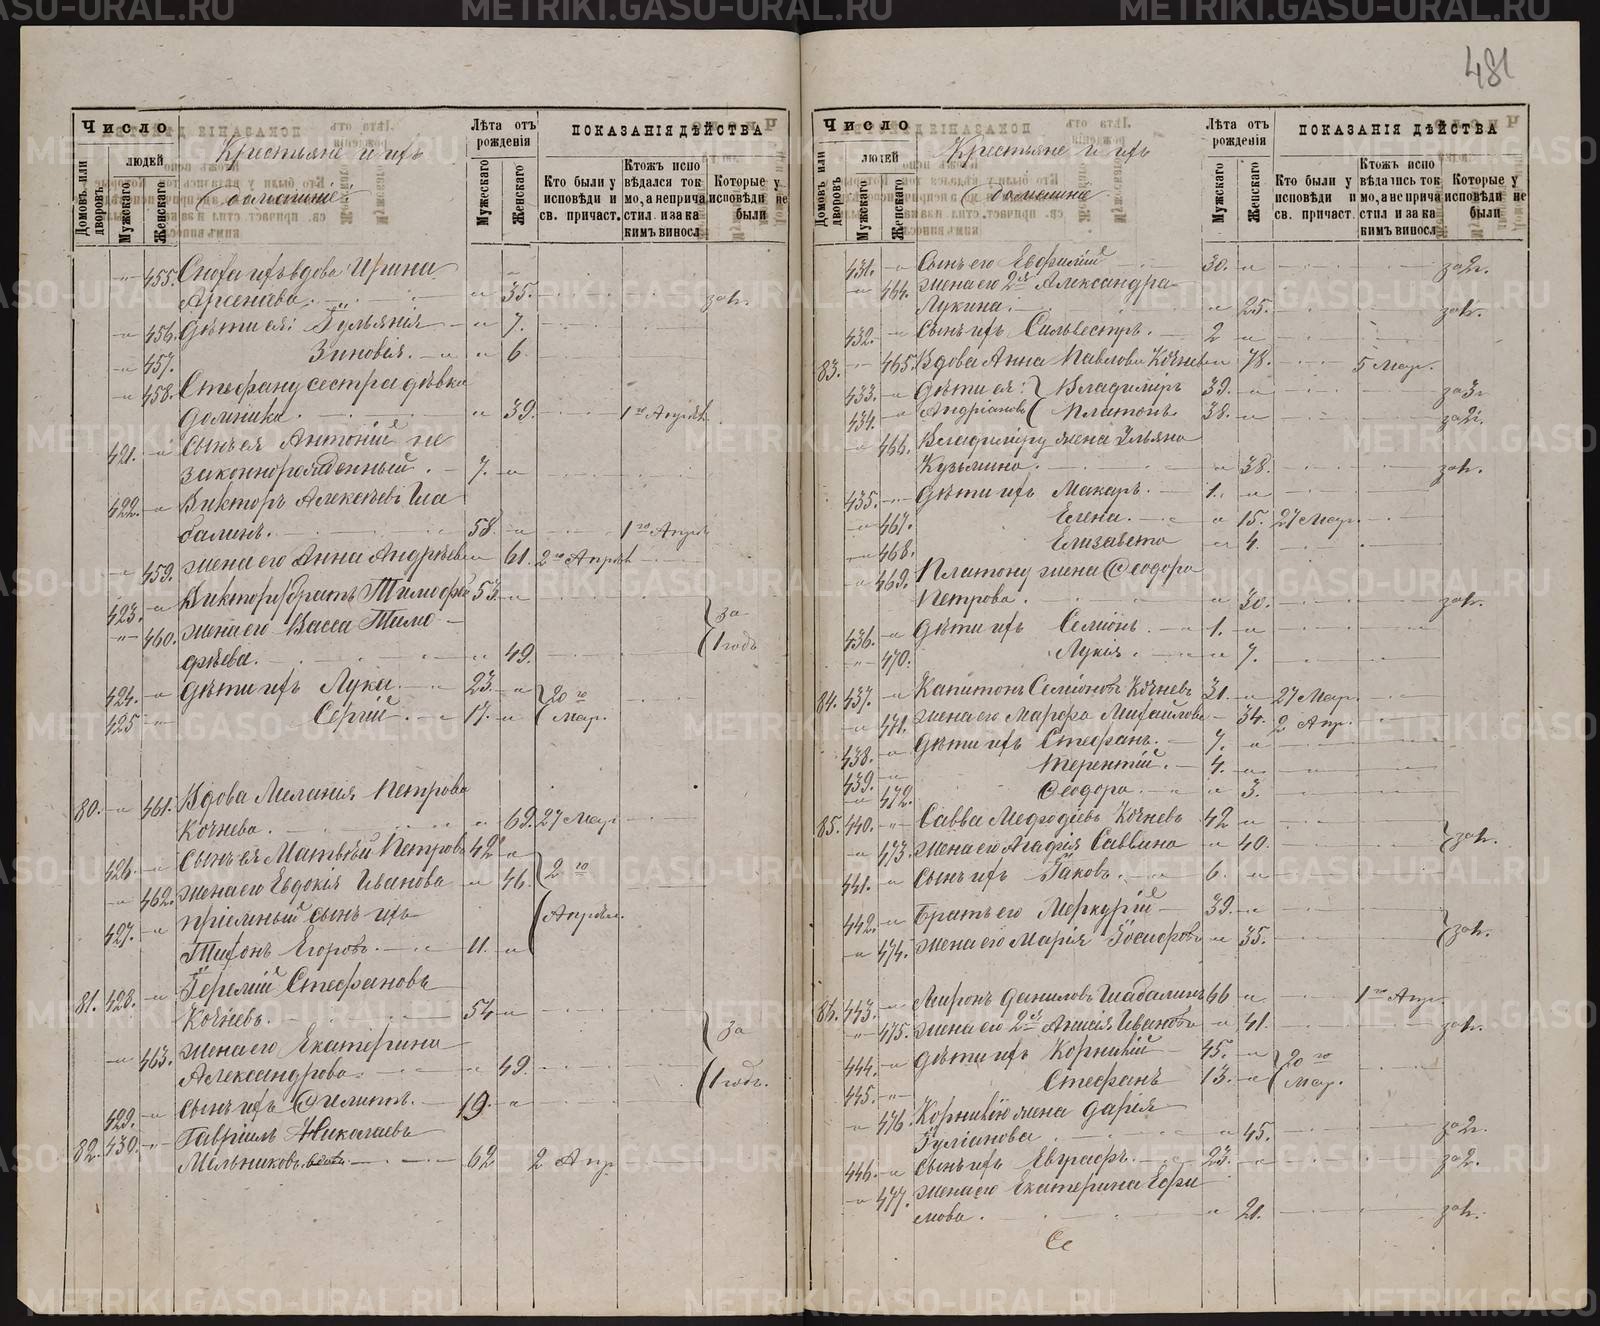 481
Число
домовъ или дворовъ.
людей
Мужескаго
Женскаго
Крестьяне и ихъ
домашніе
Лѣта отъ рожденія
Мужескаго
Женскаго
ПОКАЗАНІЯ ДѢЙСТВА
Кто были у исповѣди и св. причаст.
Ктожъ исповѣдался токмо, а не причастил. и за какимъ виносл.
Которые у исповѣди не были
455. Снохи ихъ вдова Ирина
Арсеньева. 35. за 1г.
456. Дѣти ея: Іульянія 7.
457. Зиновія. 6.
458. Стефану сестра дѣвка
Домника. 39. 1го Апрѣл.
421. Сынъ ея Антоній не
законнорожденный. 7.
422. Викторъ Алексѣевъ Ша
балинъ. 58. 1го Апрѣл.
459. Жена его Анна Андрѣева 61. 2го Апрѣл.
423. Виктора братъ Тимофей 53 за
460. Жена его Васса Тимо
фѣева. 49. 1 годъ
424. Дѣти ихъ Лука. 23. 20го
425 Сергій. 17. Мар.
80. 461. Вдова Меланія Петрова
Кочнева. 69. 27 Мар.
426. Сынъ ея Матвѣй Петровъ 42 2го
462. Жена его Евдокія Иванова 46.
427. Пріемный сынъ ихъ Апрѣля.
Тихонъ Егоровъ. 11.
81. 428. Іеремій Стефановъ
Кочневъ. 54 за
463. Жена его Екатерина
Александрова. 49. 1 годъ.
429. Сынъ ихъ Филиппъ. 19.
82. 430. Гавріилъ Николаевъ
Мельниковъ 62 2 Апр.
Число
домовъ или дворовъ.
людей
Мужескаго
Женскаго
Крестьяне и ихъ
домашніе
Лѣта отъ рожденія
Мужескаго
Женскаго
ПОКАЗАНІЯ ДѢЙСТВА
Кто были у исповѣди и св. причаст.
Ктожъ исповѣдались токмо, а не причастил. и за какимъ виносл.
Которые у исповѣди не были
431. Сынъ его Евфимій 30. за 2г.
464. Жена его 2я Александра
Лукина. 25. за 1г.
432. Сынъ ихъ Сильвестръ. 2
83. 465. Вдова Анна Павлова Кочнева 78. 5 Мар.
433. Дѣти ея: Владиміръ 39. за 3г
434. Андріановы Платонъ. 38. за 2г.
466. Владиміру жена Ульяна
Кузьмина. 38. за 1г.
435. Дѣти ихъ Макаръ. 1.
467. Елена. 15. 27 Мар.
468. Елизавета 4.
469. Платону жена Ѳеодора
Петрова. 30. за 1г.
436. Дѣти ихъ Семіонъ. 1.
470. Лукія. 7.
84. 437. Капитонъ Семіоновъ Кочневъ 31. 27 Мар.
471. Жена его Марфа Михайлова 34. 2 Апр.
438. Дѣти ихъ Стефанъ. 7.
439. Терентій. 4.
472. Ѳеодора. 3.
85. 440. Савва Мефодіевъ Кочневъ 42
473. Жена его Агафія Саввина 40. за 1г.
441. Сынъ ихъ Іаковъ. 6.
442. Братъ его Меркурій 39.
474. Жена его Марія Іосифова 35. за 1г.
86. 443. Миронъ Даниловъ Шабалинъ 66 1го Апр.
475. Жена его 2я Анисія Иванова 41. за 1г.
444. Дѣти ихъ Корнилій 45. 20го
445. Стефанъ 13. Мар.
476. Корнилію жена Дарія
Іуліанова 45. за 2г.
446. Сынъ ихъ Евграфъ. 23. за 2.
477. Жена его Екатерина Ефи
мова. 21. за 1г.
METRIKI.GASO-URAL.RU